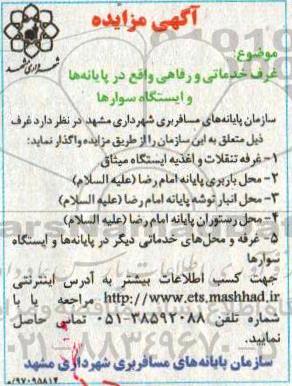 آگهی مزایده
شهرداری مشهد
موضوع:
غرف خدماتی و رفاهی واقع در پایانه‌ها
و ایستگاه سوارها
سازمان پایانه‌های مسافربری شهرداری مشهد در نظر دارد غرف
ذیل متعلق به این سازمان را از طریق مزایده واگذار نماید:
۱- غرفه تنقلات و اغذیه ایستگاه میثاق
۲- محل باربری پایانه امام رضا (علیه السلام)
۳- محل انبار توشه پایانه امام رضا (علیه السلام)
۴- محل رستوران پایانه امام رضا (علیه السلام)
۵- غرفه و محل‌های خدماتی دیگر در پایانه‌ها و ایستگاه
سوارها
جهت کسب اطلاعات بیشتر به آدرس اینترنتی
http://www.ets.mashhad.ir مراجعه یا با
شماره تلفن ۳۸۵۹۲۰۸۸-۰۵۱ تماس حاصل
نمایید.
سازمان پایانه‌های مسافربری شهرداری مشهد
/۹۷۰۹۵۸۱۴